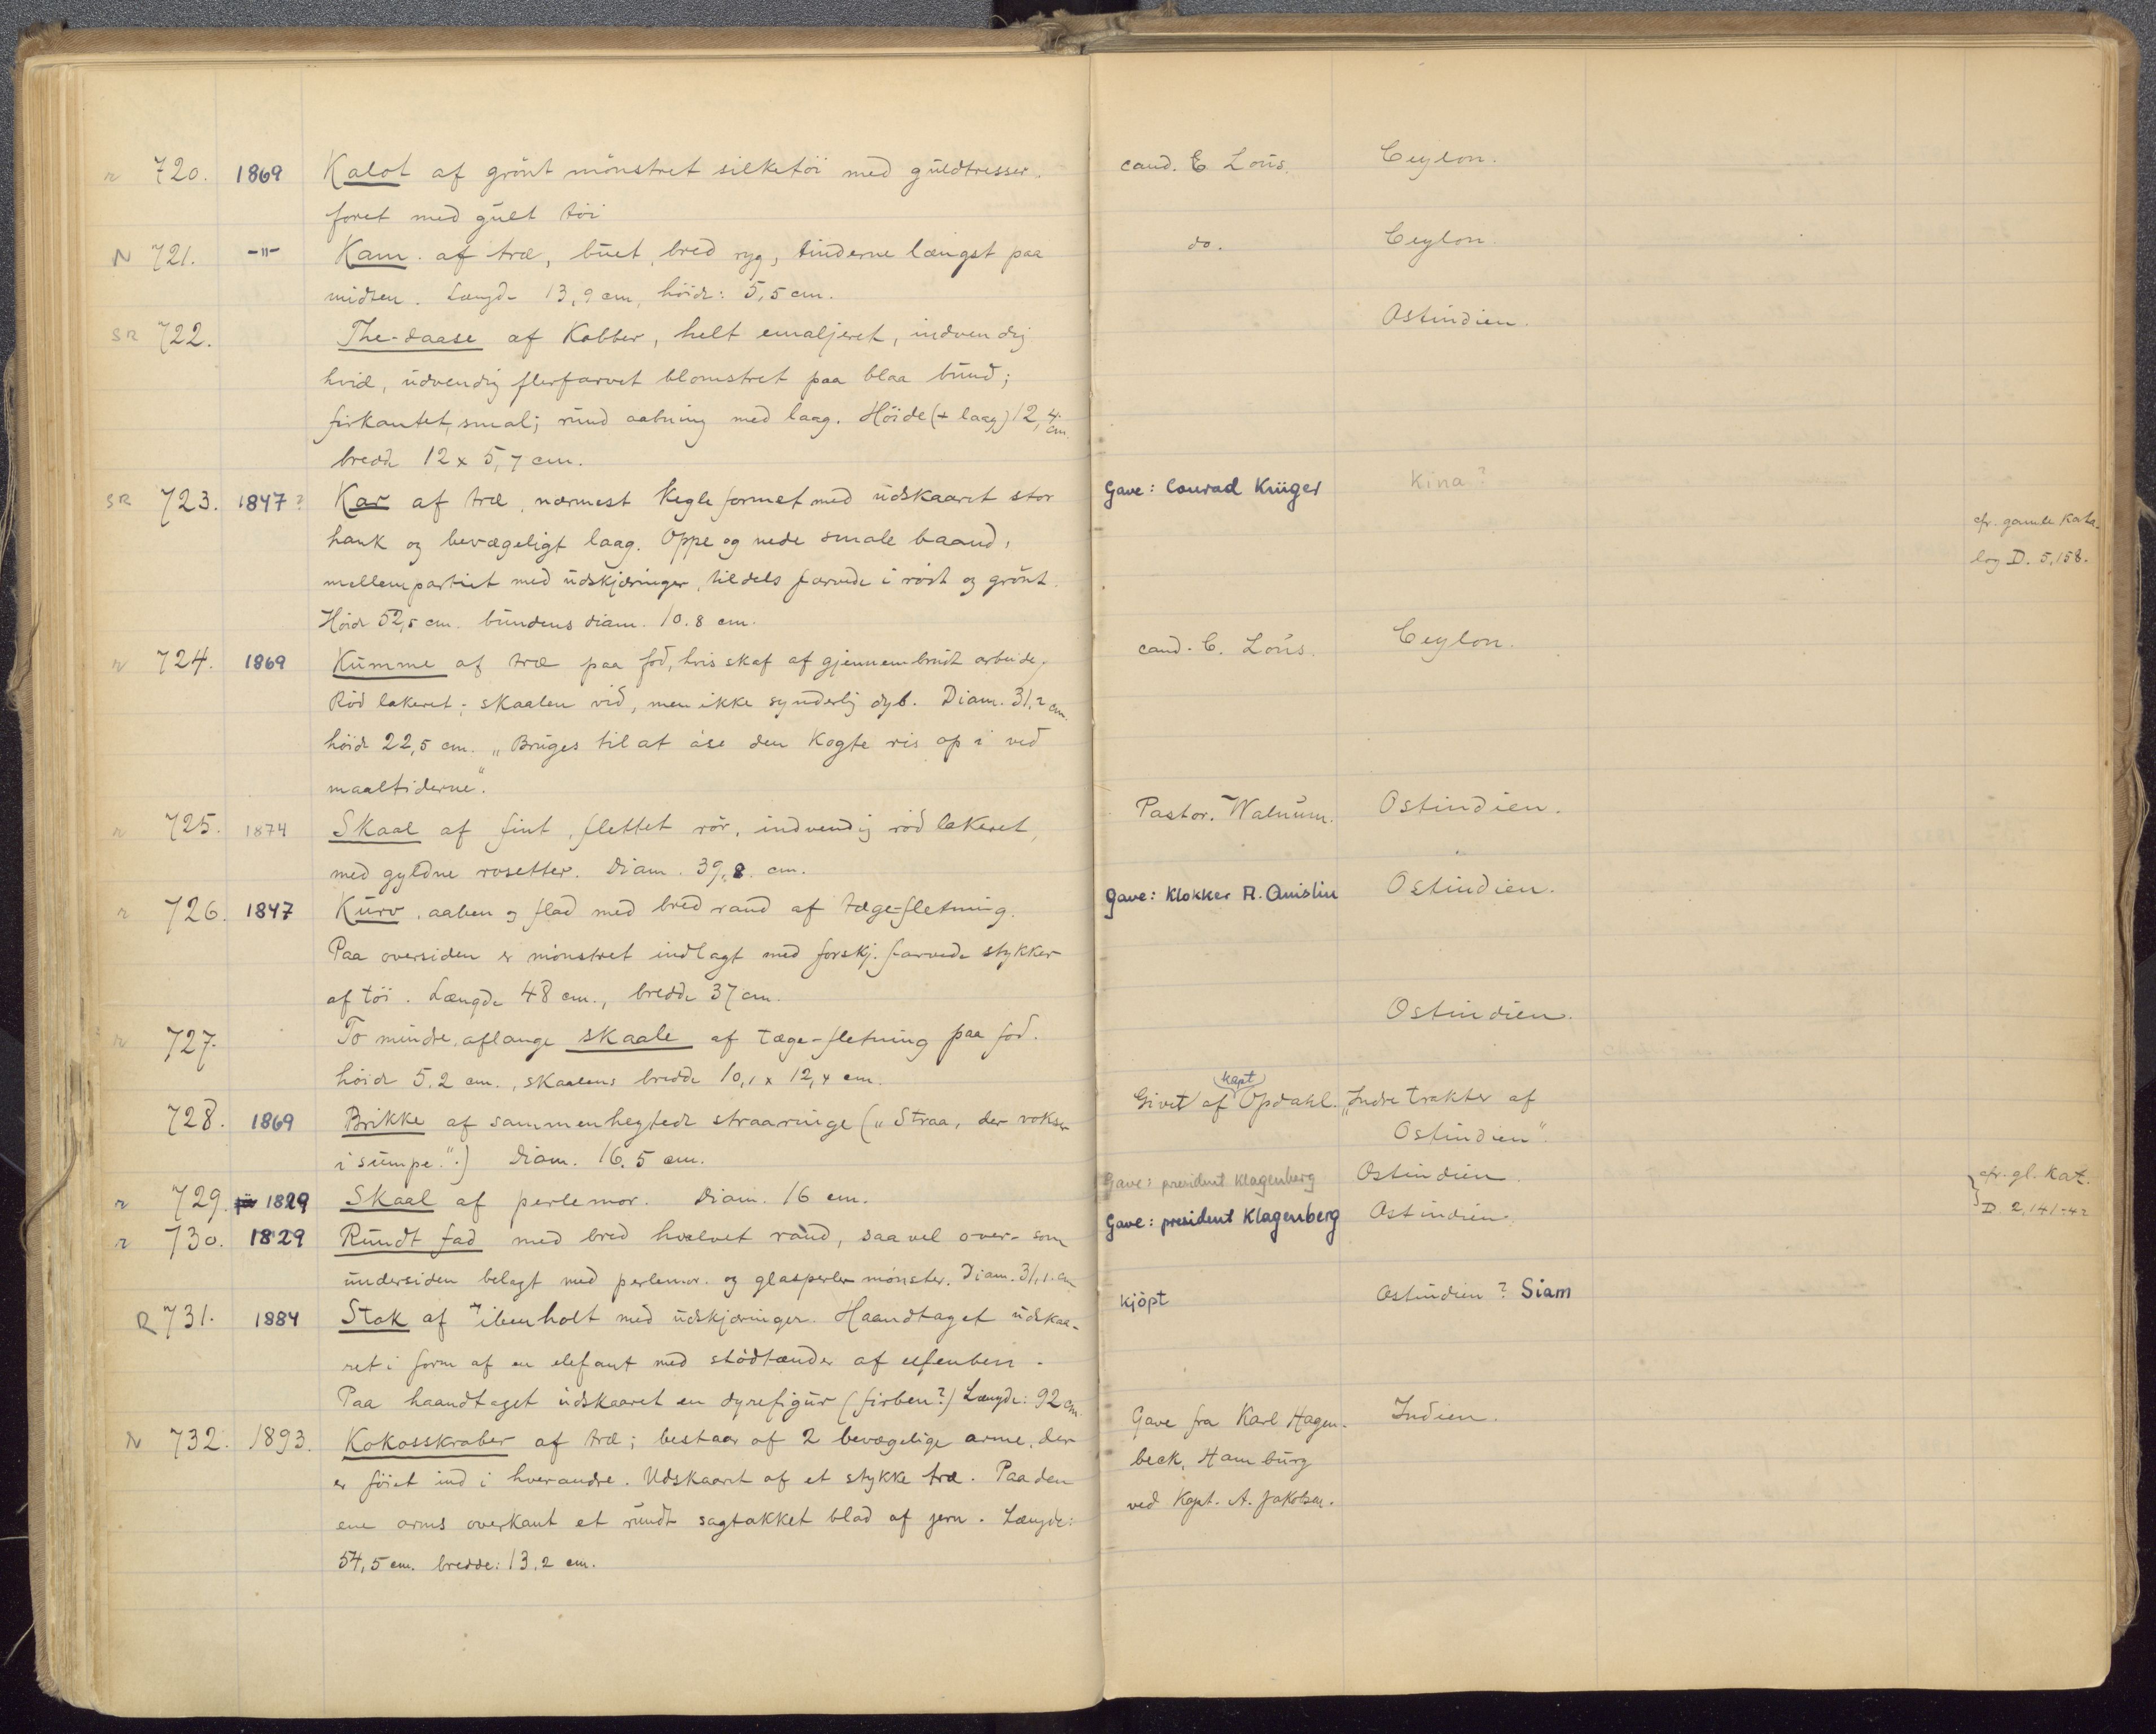 r 720. 1869 Kalot af grönt mönstret silketöi med guldtresser. cand. C Loüs. Ceylon.
foret med gult töi
N 721. -"- Kam. af træ, buet, bred ryg, tinderne længst paa do. Ceylon.
midten. Længde 13,9 cm, höide: 5,5 cm.
SR 722. The-daase af Kobber, helt emaljeret, indvendig Ostindien.
hvid, udvendig flerfarvet blomstret paa blaa bund;
firkantet, smal; rund aabning med laag. Höide (+ laag) 12,4 cm
bredde 12 x 5,7 cm.
SR 723. 1847? Kar af træ, nærmest Kegleformet med udskaaret stor Gave: Conrad Krüger Kina?
hank og bevægeligt laag. Oppe og nede smale baand, cfr. gamle Kata-
mellempartiet med udskjæringer, tildels farvede i rödt og grönt. log D. 5,158.
Höide 52,5 cm. bundens diam. 10.8 cm.
r 724. 1869 Kumme af træ paa fod, hvis skaf af gjennembrudt arbeide, cand. C. Loüs. Ceylon.
Röd lakeret; skaalen vid, men ikke synderlig dyb. Diam. 31,2 cm.
höide 22,5 cm. „Bruges til at öse den Kogte ris op i ved
maaltiderne".
r 725. 1874 Skaal af fint, flettet rör, indvendig röd lakeret, Pastor. Walnum. Ostindien.
med gyldne rosetter. Diam. 39,8. cm.
r 726. 1847 Kurv, aaben og flad med bred rand af tæge-fletning. Gave: Klokker A. Quislin Ostindien.
Paa oversiden er mönstret indlagt med forskj. farvede stykker
af töi. Længde 48 cm., bredde 37 cm.
r 727. To mindre, aflange skaale af tæge-fletning paa fod. Ostindien.
höide 5.2 cm., skaalens bredde 10,1 x 12,4 cm.
728. 1869 Brikke af sammenheftede straaringe („Straa, der vokser Givet af kapt Opdahl. „Indre trakter af
i sumpe.".) Diam. 16.5 cm. Ostindien".
r 729. 1829 Skaal af perlemor. Diam. 16 cm. Gave: president Klagenberg Ostindien. cfr. gl. Kat.
r 730. 1829 Rundt fad med bred hvælvet rand, saavel over- som Gave: president Klagenberg Ostindien. D. 2,141-42
undersiden belagt med perlemor. og glasperler mönster. Diam. 31,1. cm
R 731. 1884 Stok af ibenholt med udskjæringer. Haandtaget udskaa- kjöpt Ostindien? Siam
ret i form af en elefant med stödtænder af elfenben.
Paa haandtaget udskaaret en dyrefigur (firben?) Længde: 92 cm.
N 732. 1893. Kokosskraber af træ; bestaar af 2 bevægelige arme, der Gave fra Karl Hagen- Indien.
er föiet ind i hverandre. Udskaaret af et stykke træ. Paa den beck, Hamburg
ene arms overkant et rundt sagtakket blad af jern. Længde: ved Kapt. A. Jakobsen.
54,5 cm. bredde: 13.2 cm.